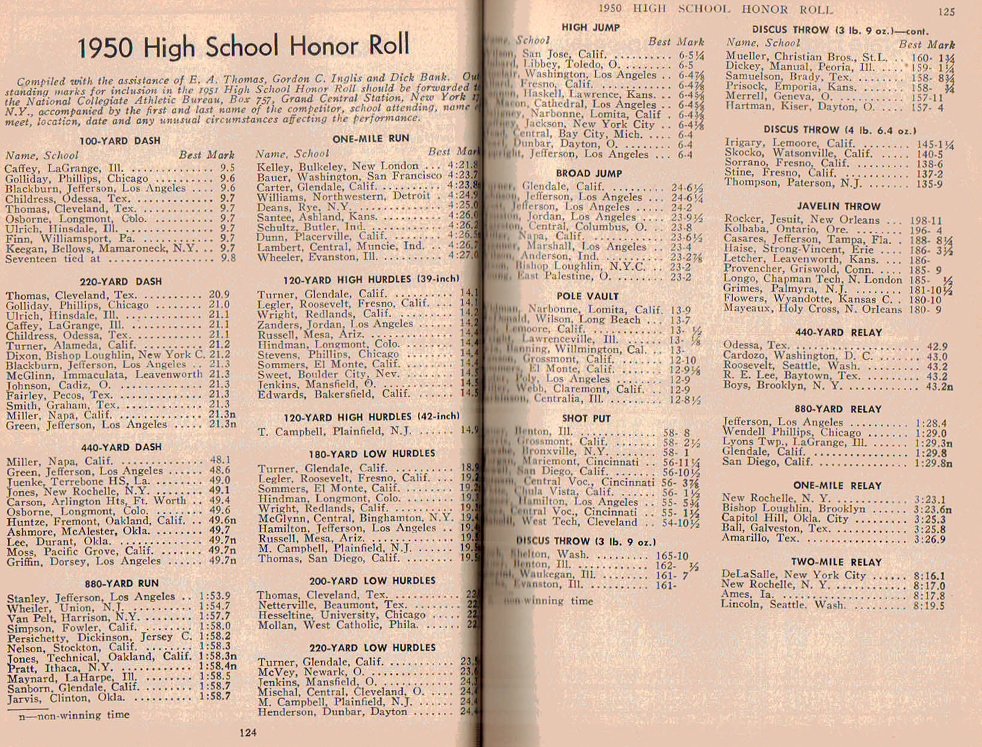 1950 High School Honor Roll
Compiled with the assistance of E. A. Thomas, Gordon C. Inglis and Dick Bank. Out
standing marks for inclusion in the 1951 High School Honor Roll should be forwarded t
the National Collegiate Athletic Bureau, Box 757, Grand Central Station, New York 17
N.Y., accompanied by the first and last name of the competitor, school attending, name
meet, location, date and any unusual circumstances affecting the performance.
100-YARD DASH
Name, School Best Mark
Caffey, LaGrange, Ill. 9.5
Golliday, Phillips, Chicago 9.6
Blackburn, Jefferson, Los Angeles 9.6
Childress, Odessa, Tex. 9.7
Thomas, Cleveland, Tex. 9.7
Osborne, Longmont, Colo. 9.7
Ulrich, Hinsdale, Ill. 9.7
Finn, Williamsport, Pa. 9.7
Keegan, Bellows, Mamaroneck, N.Y. 9.7
Seventeen tied at 9.8
220-YARD DASH
Thomas, Cleveland, Tex. 20.9
Golliday, Phillips, Chicago 21.0
Ulrich, Hinsdale, Ill. 21.1
Caffey, LaGrange, Ill. 21.1
Childress, Odessa, Tex. 21.1
Turner, Alameda, Calif. 21.2
Dixon, Bishop Loughlin, New York C. 21.2
Blackburn, Jefferson, Los Angeles 21.3
McGlinn, Immaculata, Leavenworth 21.3
Johnson, Cadiz, O. 21.3
Fairley, Pecos, Tex. 21.3
Smith, Graham, Tex. 21.3
Miller, Napa, Calif. 21.3n
Green, Jefferson, Los Angeles 21.3n
440-YARD DASH
Miller, Napa, Calif. 48.1
Green, Jefferson, Los Angeles 48.6
Juenke, Terrebone HS, La. 49.0
Jones, New Rochelle, N.Y. 49.1
Carson, Arlington Hts, Ft. Worth 49.4
Osborne, Longmont, Colo. 49.6
Huntze, Fremont, Oakland, Calif. 49.6n
Ashmore, McAlester, Okla. 49.7
Lee, Durant, Okla. 49.7n
Moss, Pacific Grove, Calif. 49.7n
Griffin, Dorsey, Los Angeles 49.7n
880-YARD RUN
Stanley, Jefferson, Los Angeles 1:53.9
Wheiler, Union, N.J. 1:54.7
Van Pelt, Harrison, N.Y. 1:57.7
Simpson, Fowler, Calif. 1:58.0
Persichetty, Dickinson, Jersey C. 1:58.2
Nelson, Stockton, Calif. 1:58.3
Jones, Technical, Oakland, Calif. 1:58.3n
Pratt, Ithaca, N.Y. 1:58.4n
Maynard, LaHarpe, Ill. 1:58.5
Sanborn, Glendale, Calif. 1:58.7
Jarvis, Clinton, Okla. 1:58.7
n—non-winning time
ONE-MILE RUN
Name, School Best Mar
Kelley, Bulkeley, New London 4:21.8
Bauer, Washington, San Francisco 4:23.7
Carter, Glendale, Calif. 4:23.8
Williams, Northwestern, Detroit 4:24.9
Deans, Rye, N.Y. 4:25.0
Santee, Ashland, Kans. 4:26.0
Schultz, Butler, Ind. 4:26.2
Dunn, Placerville, Calif. 4:26.5
Lambert, Central, Muncie, Ind. 4:26.7
Wheeler, Evanston, Ill. 4:27.0
120-YARD HIGH HURDLES (39-inch)
Turner, Glendale, Calif. 14.1
Legler, Roosevelt, Fresno, Calif. 14.2
Wright, Redlands, Calif. 14.2
Zanders, Jordan, Los Angeles 14.2
Russell, Mesa, Ariz. 14.4
Hindman, Longmont, Colo. 14.4
Stevens, Phillips, Chicago 14.4
Sommers, El Monte, Calif. 14.4
Sweet, Boulder City, Nev. 14.5
Jenkins, Mansfield, O. 14.5
Edwards, Bakersfield, Calif. 14.5
120-YARD HIGH HURDLES (42-inch)
T. Campbell, Plainfield, N.J. 14.9
180-YARD LOW HURDLES
Turner, Glendale, Calif. 18.9
Legler, Roosevelt, Fresno, Calif. 19.2
Sommers, El Monte, Calif. 19.2
Hindman, Longmont, Colo. 19.3
Wright, Redlands, Calif. 19.3
McGlynn, Central, Binghamton, N.Y. 19.4
Hamilton, Jefferson, Los Angeles 19.4
Russell, Mesa, Ariz. 19.5
M. Campbell, Plainfield, N.J. 19.5
Thomas, San Diego, Calif. 19.5
200-YARD LOW HURDLES
Thomas, Cleveland, Tex. 22.
Netterville, Beaumont, Tex. 22.
Hesseltine, University, Chicago 22.
Mollan, West Catholic, Phila. 22.
220-YARD LOW HURDLES
Turner, Glendale, Calif. 23.
McVey, Newark, O. 23.
Jenkins, Mansfield, O. 24.
Mischal, Central, Cleveland, O. 24.
M. Campbell, Plainfield, N.J. 24.
Henderson, Dunbar, Dayton 24.
124
1950 HIGH SCHOOL HONOR ROLL 125
HIGH JUMP
School Best Mark
San Jose, Calif. 6-5¼
Libbey, Toledo, O. 6-5
Washington, Los Angeles 6-4⅞
Fresno, Calif. 6-4⅞
Haskell, Lawrence, Kans. 6-4⅝
Cathedral, Los Angeles 6-4⅝
Narbonne, Lomita, Calif 6-4⅜
Jackson, New York City 6-4⅛
Central, Bay City, Mich. 6-4
Dunbar, Dayton, O. 6-4
Jefferson, Los Angeles 6-4
BROAD JUMP
Glendale, Calif. 24-6½
Jefferson, Los Angeles 24-6¼
Jefferson, Los Angeles 24-2
Jordan, Los Angeles 23-9½
Central, Columbus, O. 23-8
Napa, Calif. 23-6½
Marshall, Los Angeles 23-4
Anderson, Ind. 23-2⅞
Bishop Loughlin, N.Y.C. 23-2
East Palestine, O. 23-2
POLE VAULT
Narbonne, Lomita, Calif. 13-9
Wilson, Long Beach 13-7
Lemoore, Calif. 13- ½
Lawrenceville, Ill. 13- ⅛
Banning, Wilmington, Cal. 13-
Grossmont, Calif. 12-10
El Monte, Calif. 12-9⅝
Poly, Los Angeles 12-9
Webb, Claremont, Calif. 12-9
Centralia, Ill. 12-8½
SHOT PUT
Benton, Ill. 58- 8
Grossmont, Calif. 58- 2½
Bronxville, N.Y. 58- 1
Mariemont, Cincinnati 56-11¼
San Diego, Calif. 56-10½
Central Voc., Cincinnati 56- 3⅞
Chula Vista, Calif. 56- 1½
Hamilton, Los Angeles 55- 5¾
Central Voc., Cincinnati 55- 1½
West Tech, Cleveland 54-10½
DISCUS THROW (3 lb. 9 oz.)
Shelton, Wash. 165-10
Benton, Ill. 162- ½
Waukegan, Ill. 161- 7
Evanston, Ill. 161-
non-winning time
DISCUS THROW (3 lb. 9 oz.)—cont.
Name, School Best Mark
Mueller, Christian Bros., St.L. 160- 1¾
Dickey, Manual, Peoria, Ill. 159- 1½
Samuelson, Brady, Tex. 158- 8¾
Prisock, Emporia, Kans. 158- ¾
Merrell, Geneva, O. 157-11
Hartman, Kiser, Dayton, O. 157- 4
DISCUS THROW (4 lb. 6.4 oz.)
Irigary, Lemoore, Calif. 145-1¼
Skocko, Watsonville, Calif. 140-5
Sorrano, Fresno, Calif. 138-6
Stine, Fresno, Calif. 137-2
Thompson, Paterson, N.J. 135-9
JAVELIN THROW
Rocker, Jesuit, New Orleans 198-11
Kolbaba, Ontario, Ore. 196- 4
Casares, Jefferson, Tampa, Fla. 188- 8¼
Haise, Strong-Vincent, Erie 186- 3½
Letcher, Leavenworth, Kans. 186-
Provencher, Griswold, Conn. 185- 9
Longo, Chapman Tech, N. London 185- ½
Grimes, Palmyra, N.J. 181-10½
Flowers, Wyandotte, Kansas C. 180-10
Mayeaux, Holy Cross, N. Orleans 180- 9
440-YARD RELAY
Odessa, Tex. 42.9
Cardozo, Washington, D. C. 43.0
Roosevelt, Seattle, Wash. 43.2
R. E. Lee, Baytown, Tex. 43.2
Boys, Brooklyn, N. Y. 43.2n
880-YARD RELAY
Jefferson, Los Angeles 1:28.4
Wendell Phillips, Chicago 1:29.0
Lyons Twp., LaGrange, Ill. 1:29.3n
Glendale, Calif. 1:29.8
San Diego, Calif. 1:29.8n
ONE-MILE RELAY
New Rochelle, N. Y. 3:23.1
Bishop Loughlin, Brooklyn 3:23.6n
Capitol Hill, Okla. City 3:25.3
Ball, Galveston, Tex. 3:25.8
Amarillo, Tex. 3:26.9
TWO-MILE RELAY
DeLaSalle, New York City 8:16.1
New Rochelle, N. Y. 8:17.0
Ames, Ia. 8:17.8
Lincoln, Seattle. Wash. 8:19.5